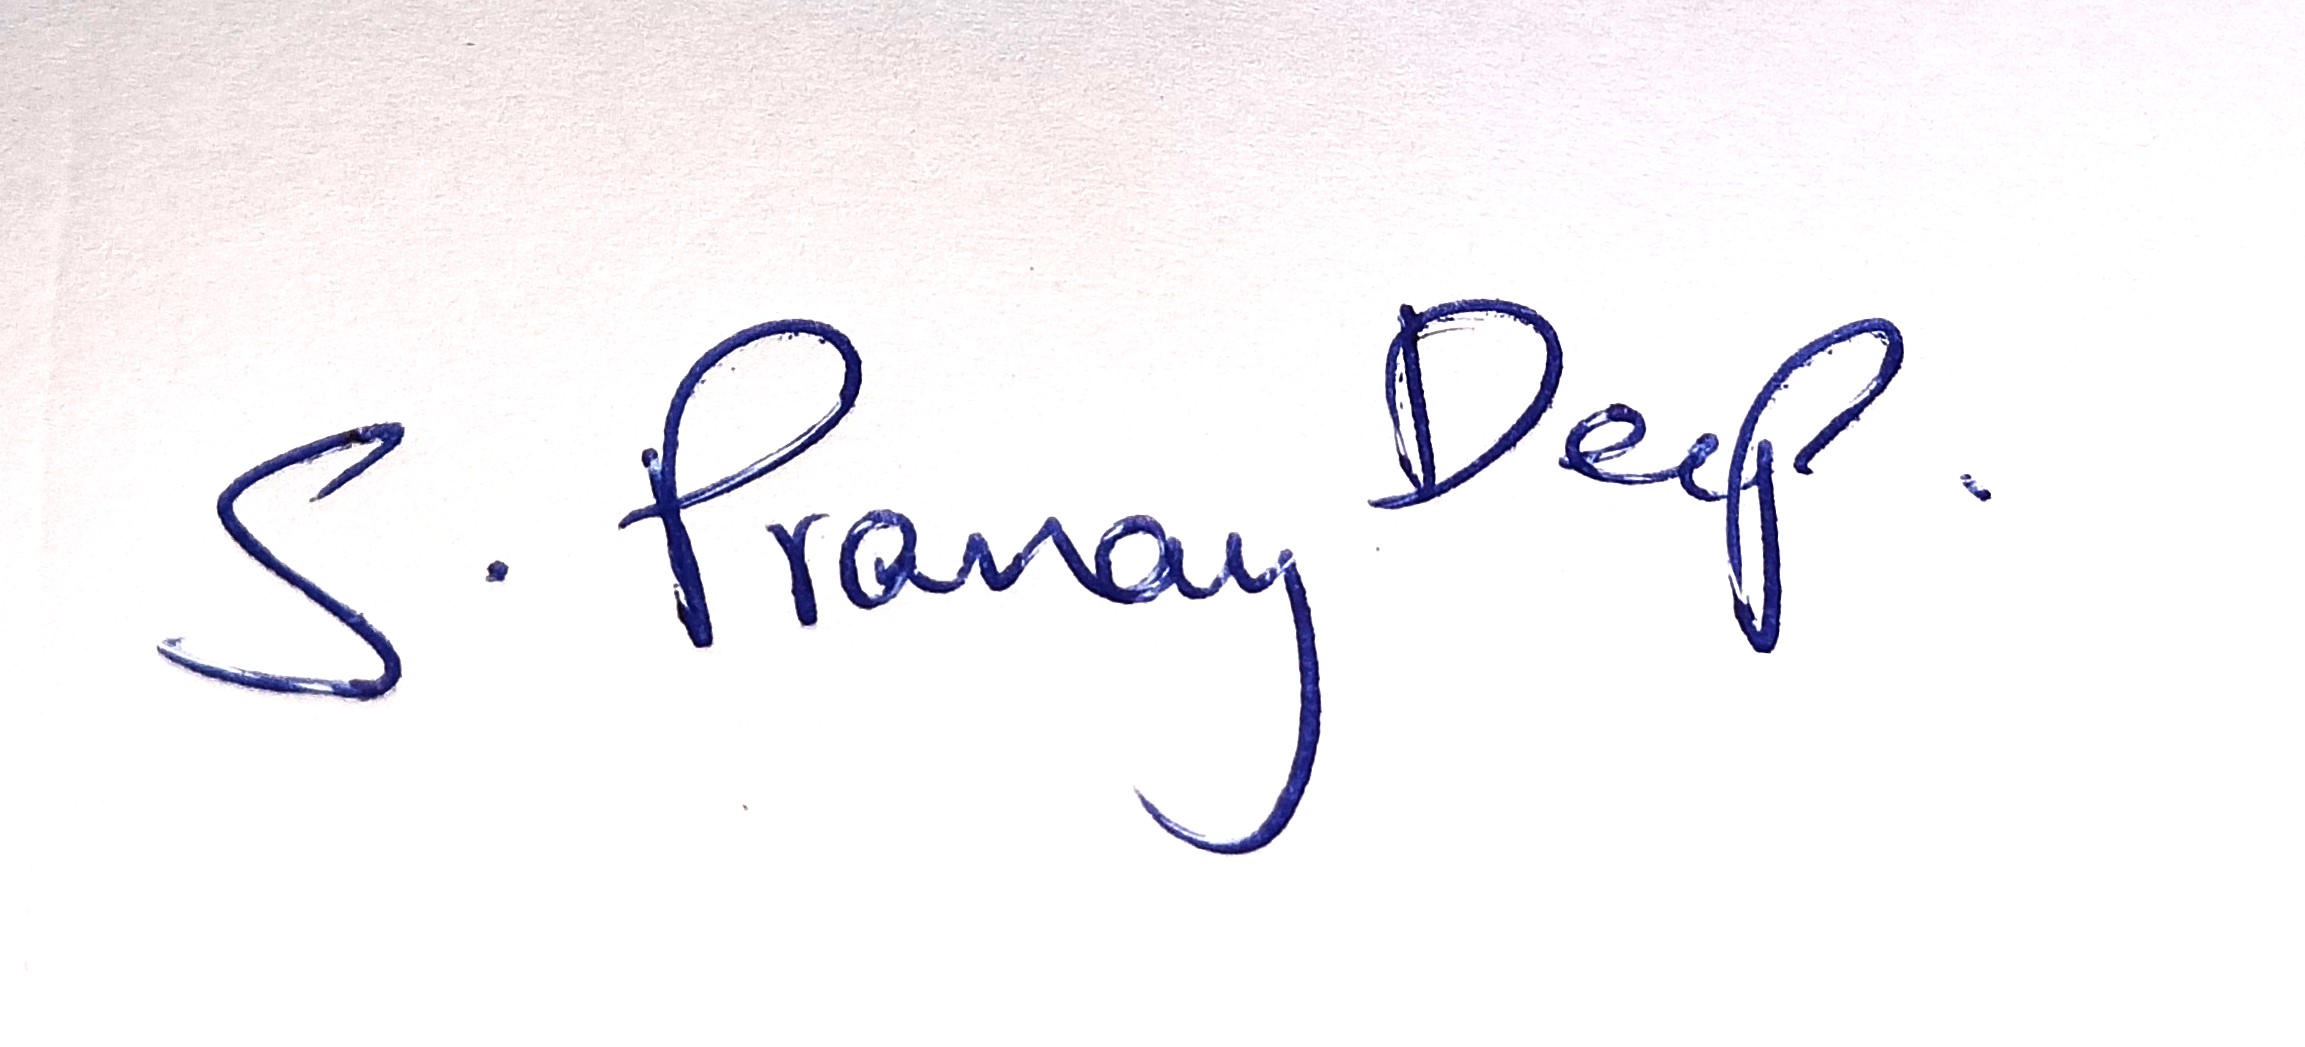 S. Pranay Deep.